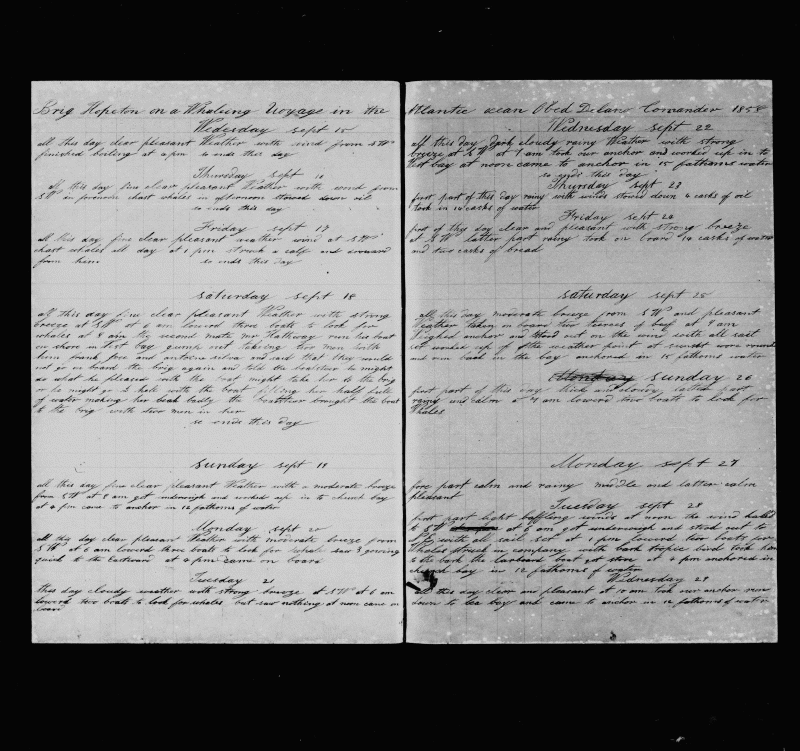 Brig Hopeton on a Whaleing Voyage in the
Wedesday sept 15
all this day clear pleasant Weather with wind from SW
finished boiling at 2 pm so ends this day
Thursday sept 16
all this day fine clear pleasant Weather with wind from
SW in forenoon chast whales in afternoon stowed down oil
so ends this day
Friday sept 17
all this day fine clear pleasant weather wind at SW
chast whales all day at 1 pm struck a calf and drawed
from him so ends this day
saturday sept 18
all this day fine clear pleasant Weather with strong
breeze at SW at 6 am lowerd three boats to look for
whales at 8 am the second mate mr Hathway run his boat
on shore in the bay jumpt out takeing two men with
him frank jose and antoine silva and said that they would
not go on board the brig again and told the boatsteer he might
do what he pleased with the boat might take her to the brig
or he might go to hell with the boat filling her half full
of water makeing her leak badly the boatsteer brought the boat
to the brig with two men in her
so ends this day
sunday sept 19
all this day fine clear pleasant Weather with a moderate breeze
from SW at 8 am got underweigh and worked up in to church bay
at 4 pm came to anchor in 12 fathoms of water
Monday sept 20
all this day clear pleasant Weather with moderate breeze from
SW at 6 am lowerd three boats to look for whales saw 3 going
quick to the Eastward at 4 pm came on board
Tuesday 21
this day cloudy weather with strong breeze at SW at 6 am
lowerd two boats to look for whales but saw nothing at noon came on
board
Atlantic ocean Obed Delan Comander 1858
Wednesday sept 22
all this day dark cloudy rainy Weather with strong
breeze at SW at 7 am took our anchor and worked up in to
bay at noon came to anchor in 15 fathoms water
so ends this day
Thursday sept 23
first part of this day rainy with winds stowed down 4 casks of oil
took in 14 casks of water
Friday sept 24
first of this day clear and pleasant with strong breeze
at SW latter part rainy took on board 14 casks of water
and two casks of bread
saturday sept 25
all this day moderate breeze from SW and pleasant
Weather taken on board two tierces of beef at 9 am
Weighed anchor and stood out on the wind with all sail
set worked up of the weather point at sunset wore round
and run back in the bay anchored in 15 fathoms water
Monday sunday 26
first part of this day thick and latter part
rainy and calm at 7 am lowerd two boats to look for
Whales
Monday sept 27
fore part calm and rainy middle and latter calm
pleasant
Tuesday sept 28
first part light baffling winds at noon the wind
to SW at 6 am got underweigh and stood out to
with all sail set at 1 pm lowerd two boats for
Whales struck in company with bark tropic bird took him
to the bark the larboard boat got stove at 4 pm anchored in
church bay in 12 fathoms of water
Wednesday 29
all this day clear and pleasant at 10 am took our anchor run
down to bay and came to anchor in 12 fathoms of water